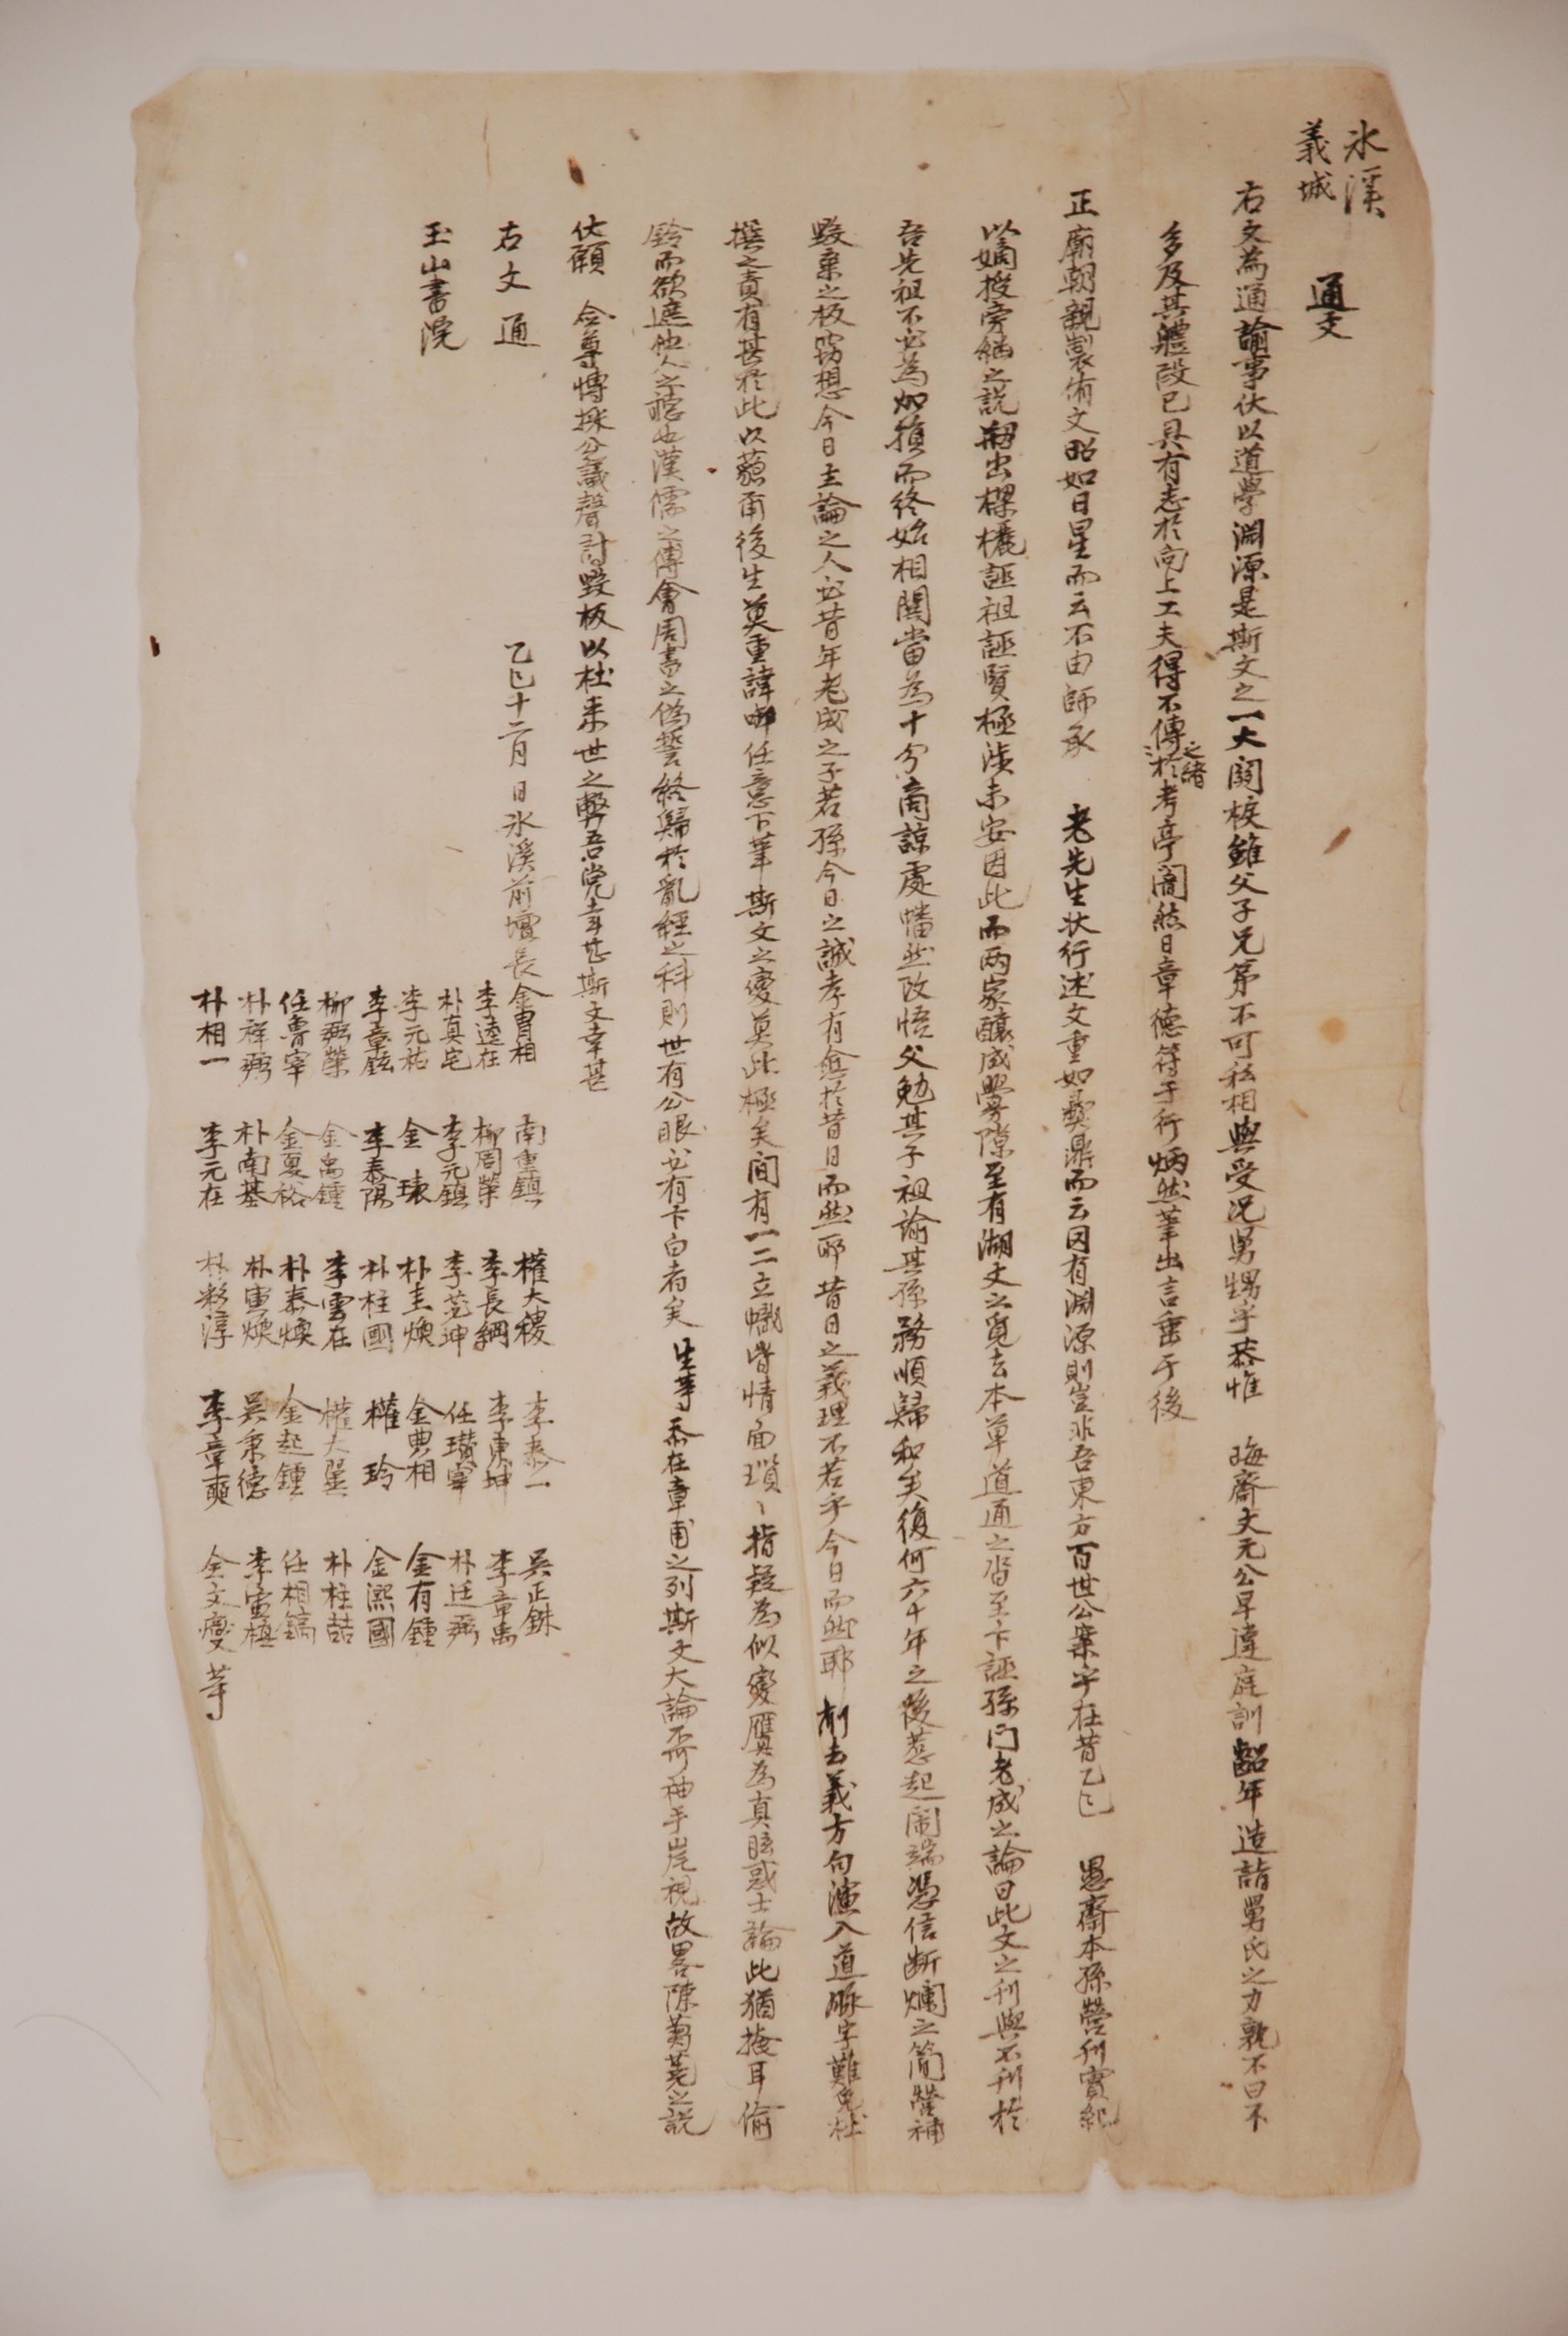 氷溪
義城
通文
右文為通諭事伏以道學淵源是斯文之一大關棙雖父子兄第不可私相與受况舅甥乎恭惟 晦齋文元公早違庭訓齠年造詣舅氏之力孰不曰不
多及其軆段已具有志於向上工夫得不傳之緖於考亭闇然日章德符于行炳然筆出言垂于後
正廟朝親製侑文昭如日星而云不由師承 老先生狀行述文重如彛鼎而云因有淵源則豈非吾東方百世公案乎在昔乙巳 愚齋本孫營刊實紀
以嫡授旁緒之說刱出樑櫬誣祖誣賢極涉未安因此而两家釀成釁隙至有湖文之覓去本草道通之沓至下誣孫門老成之論曰此文之刊與不刊於
吾先祖不必為加損而終始相関當為十分商諒處幡然改悟父勉其子祖諭其孫務順歸和矣復何六十年之後惹起鬧端憑信断爛之簡營補
毀棄之板竊想今日主論之人必昔年老成之子若孫今日之誠孝有愈於昔日而然耶昔日之義理不若乎今日而然耶 削去義方句演入道脉字難免杜
撰之責有甚於此以藐甭後生莫重諱 任意下筆斯文之變莫此極矣間有一二立幟皆情面瓚〻指疑為似變贋為真眩惑士論此猶掩耳偷
鈴而欲遮他人之聽也漢儒之傅會周書之僞誓終歸於亂經之科則世有公眼必有卞白者矣 生等忝在章甫之列斯文大論不可袖手岸視故畧陳蒭蕘之說
伏願 僉尊博採公議聲討毀板以杜来世之弊吾党幸甚斯文幸甚
右文通
玉山書院
乙巳十二月 日氷溪前壇長金胄相 南重鎮 權大稷 李泰一 吳正銖
李逵在 柳周榮 李長綱 李東坤 李章禹
朴真宅 李元鎮 李堯坤 任瓚宰 朴廷弼
李元祐 金瑔 朴圭煥 金典相 金有鍾
李章鉉 李泰陽 朴柱國 權玲 金凞國
柳弼榮 金禹鍾 李雲在 權大翌 朴柱喆
任魯宰 金夏裕 朴泰煥 金起鍾 任相鎬
朴祥弼 朴南基 朴寅煥 吳秉德 李寅植
朴相一 李元在 朴淳 李章奭 金文燮 等